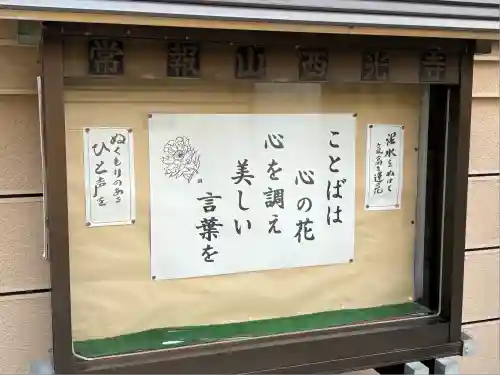 常報山西光寺
泥水をぬけて
高き蓮花
ことばは
心の花
心を調え
美しい
言葉を
ぬくもりのある
ひと声を